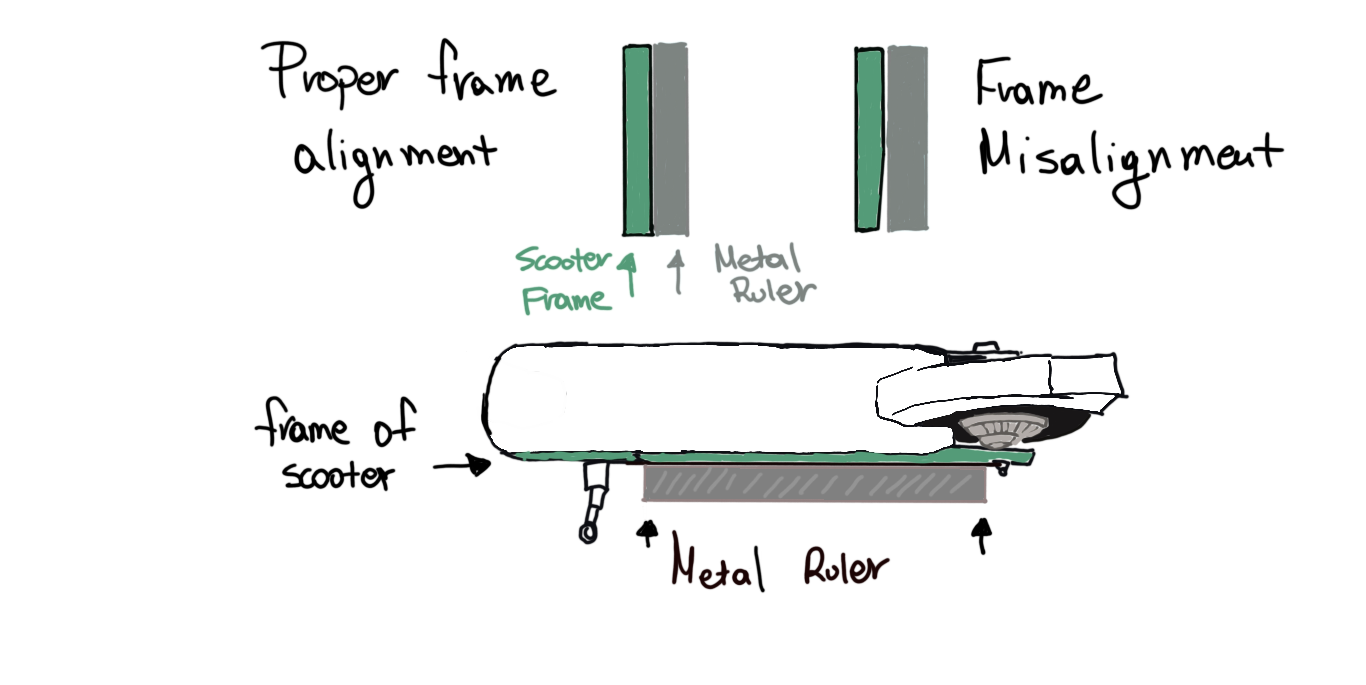 Proper frame
alignment
Frame
Misalignment
Scooter
Frame
Metal
Ruler
frame of
scooter
Metal Ruler